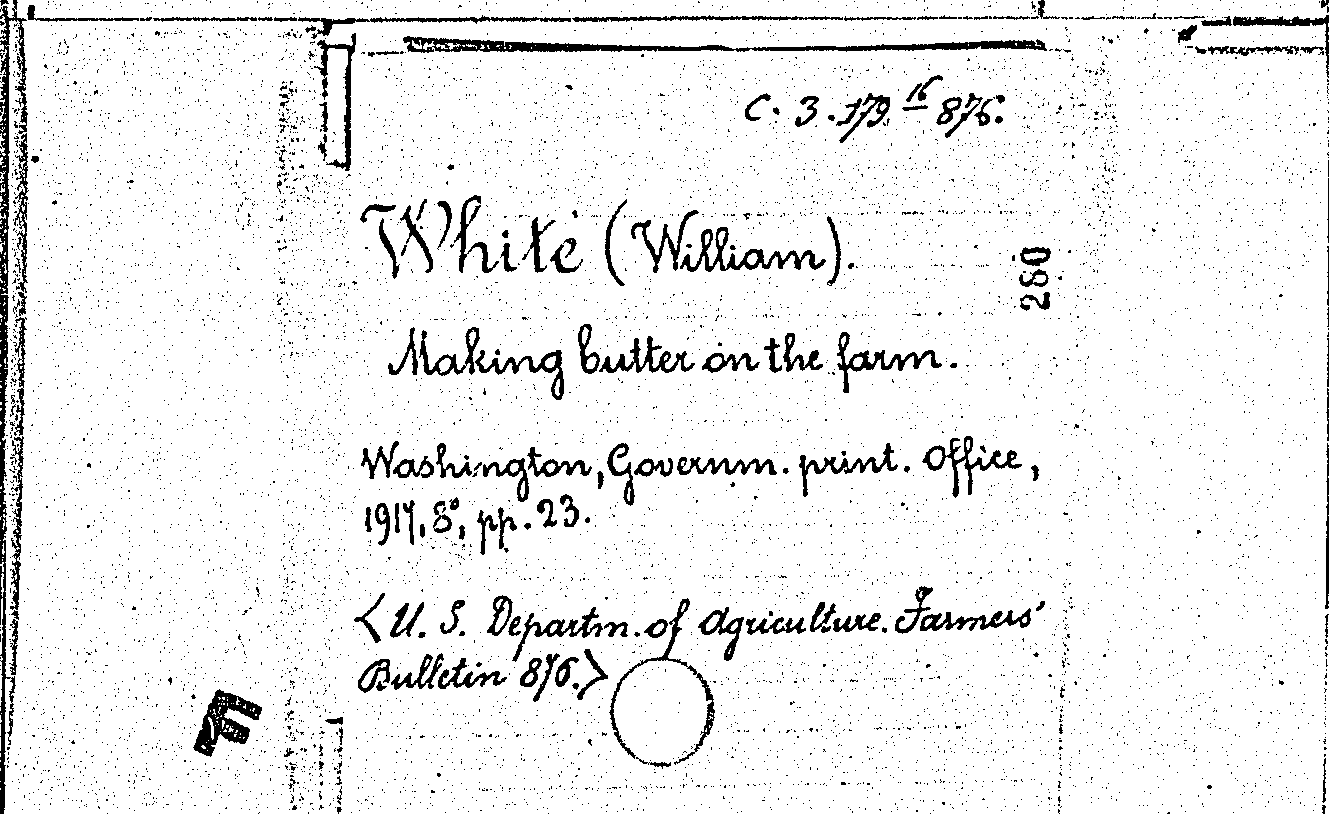 C. 3. 179 16 876.
White (William).
280
Making butter on the farm.
Washington, Governm. print. Office,
1917, 8°, pp. 23.
<U. S. Departm. of Agriculture. Farmers'
Bulletin 876.>
F